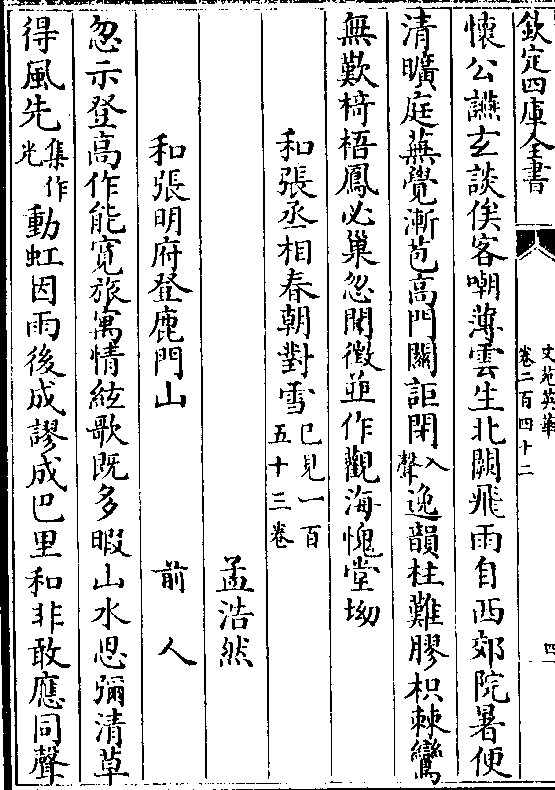 欽定四庫全書
文苑英華
卷二百四十二
四
懷公讌玄談俟客嘲薄雲生北闕飛雨自西郊院暑便
清曠庭蕪覺漸苞高門關詎閉入聲逸韻柱難膠枳棘鸞
無歎椅梧鳳必巢忽聞徵並作觀海愧堂坳
和張丞相春朝對雪已見一百五十三卷
孟浩然
和張明府登鹿門山
前人
忽示登高作能寛旅寓情絃歌既多暇山水思彌清草
得風先集作光動虹因雨後成謬成巴里和非敢應同聲